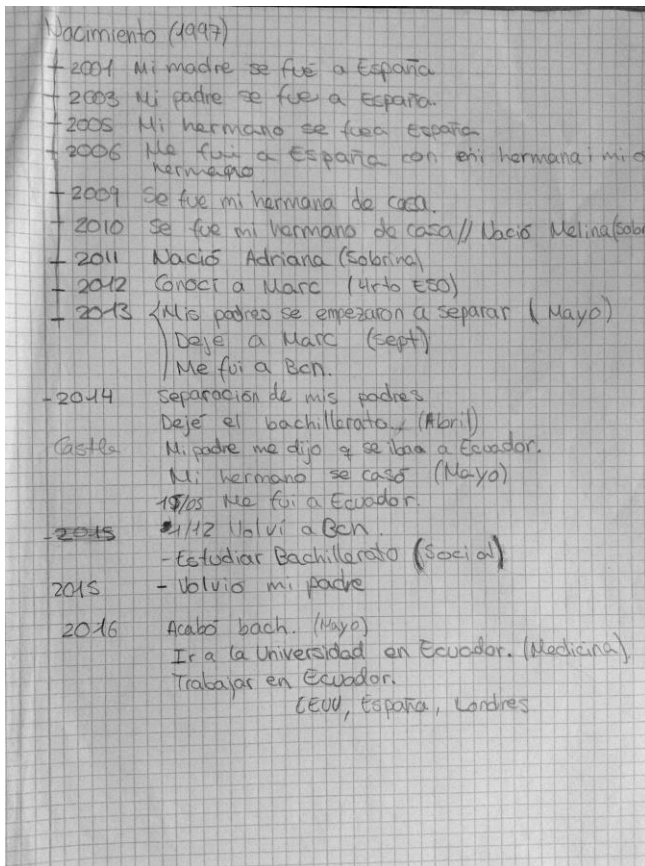 Nacimiento (1997)
2001 Mi madre se fué a España
2003 Mi padre se fue a España.
2005 Mi hermano se fue a España
2006 Me fui a España con mi hermana i mi o
hermano
2009 Se fue mi hermana de casa.
2010 se fue mi hermano de casa // Nació Melina (sobr
2011 Nació Adriana (Sobrina)
2012 Conocí a Marc (4rto ESO)
2013 Mis padres se empezaron a separar (Mayo)
Deje a Marc (sept)
Me fui a Bcn.
-2014 separación de mis padres
Dejé el bachillerato, (Abril)
Mi padre me dijo q se iba a Ecuador.
Mi hermano se casó (Mayo)
/05 Me fui a Ecuador.
-2015 1/12 Volví a Bcn.
-Estudiar Bachillerato (Social)
2015 - Volvio mi padre
2016 Acabó bach. (Mayo)
Ir a la Universidad en Ecuador. (Medicina),
Trabajar en Ecuador.
España, Londres